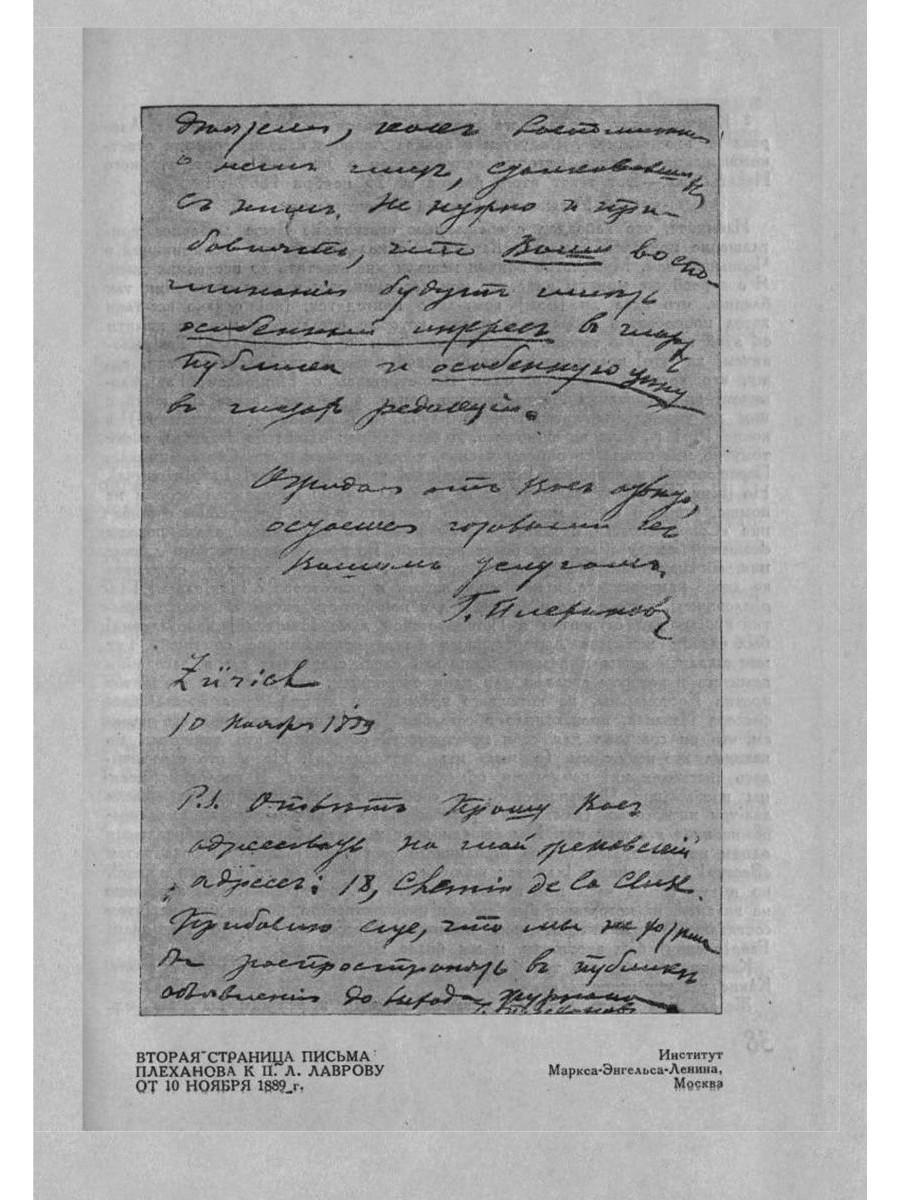 о немъ лицъ, сталкивавшихся
съ нимъ. Не нужно и при-
бавлять, что Ваши воспо-
минанія будутъ имѣть
особенный интересъ въ глазахъ
публики и особенную цѣну
въ глазахъ редакціи.
Ожидая отъ Васъ отвѣта,
остаемся готовыми къ
Вашимъ услугамъ.
Г. Плехановъ
Zürich
10 Ноября 1889
P.S. Отвѣтъ прошу Васъ
адресовать на мой женевскій
адресъ: 18, Chemin de la Cluse.
Прибавлю еще, что мы не
бы распространять въ публикѣ
объявленія до выхода журнала
Г. Плехановъ
ВТОРАЯ СТРАНИЦА ПИСЬМА
ПЛЕХАНОВА К П. Л. ЛАВРОВУ
ОТ 10 НОЯБРЯ 1889 г.
Институт
Маркса-Энгельса-Ленина,
Москва